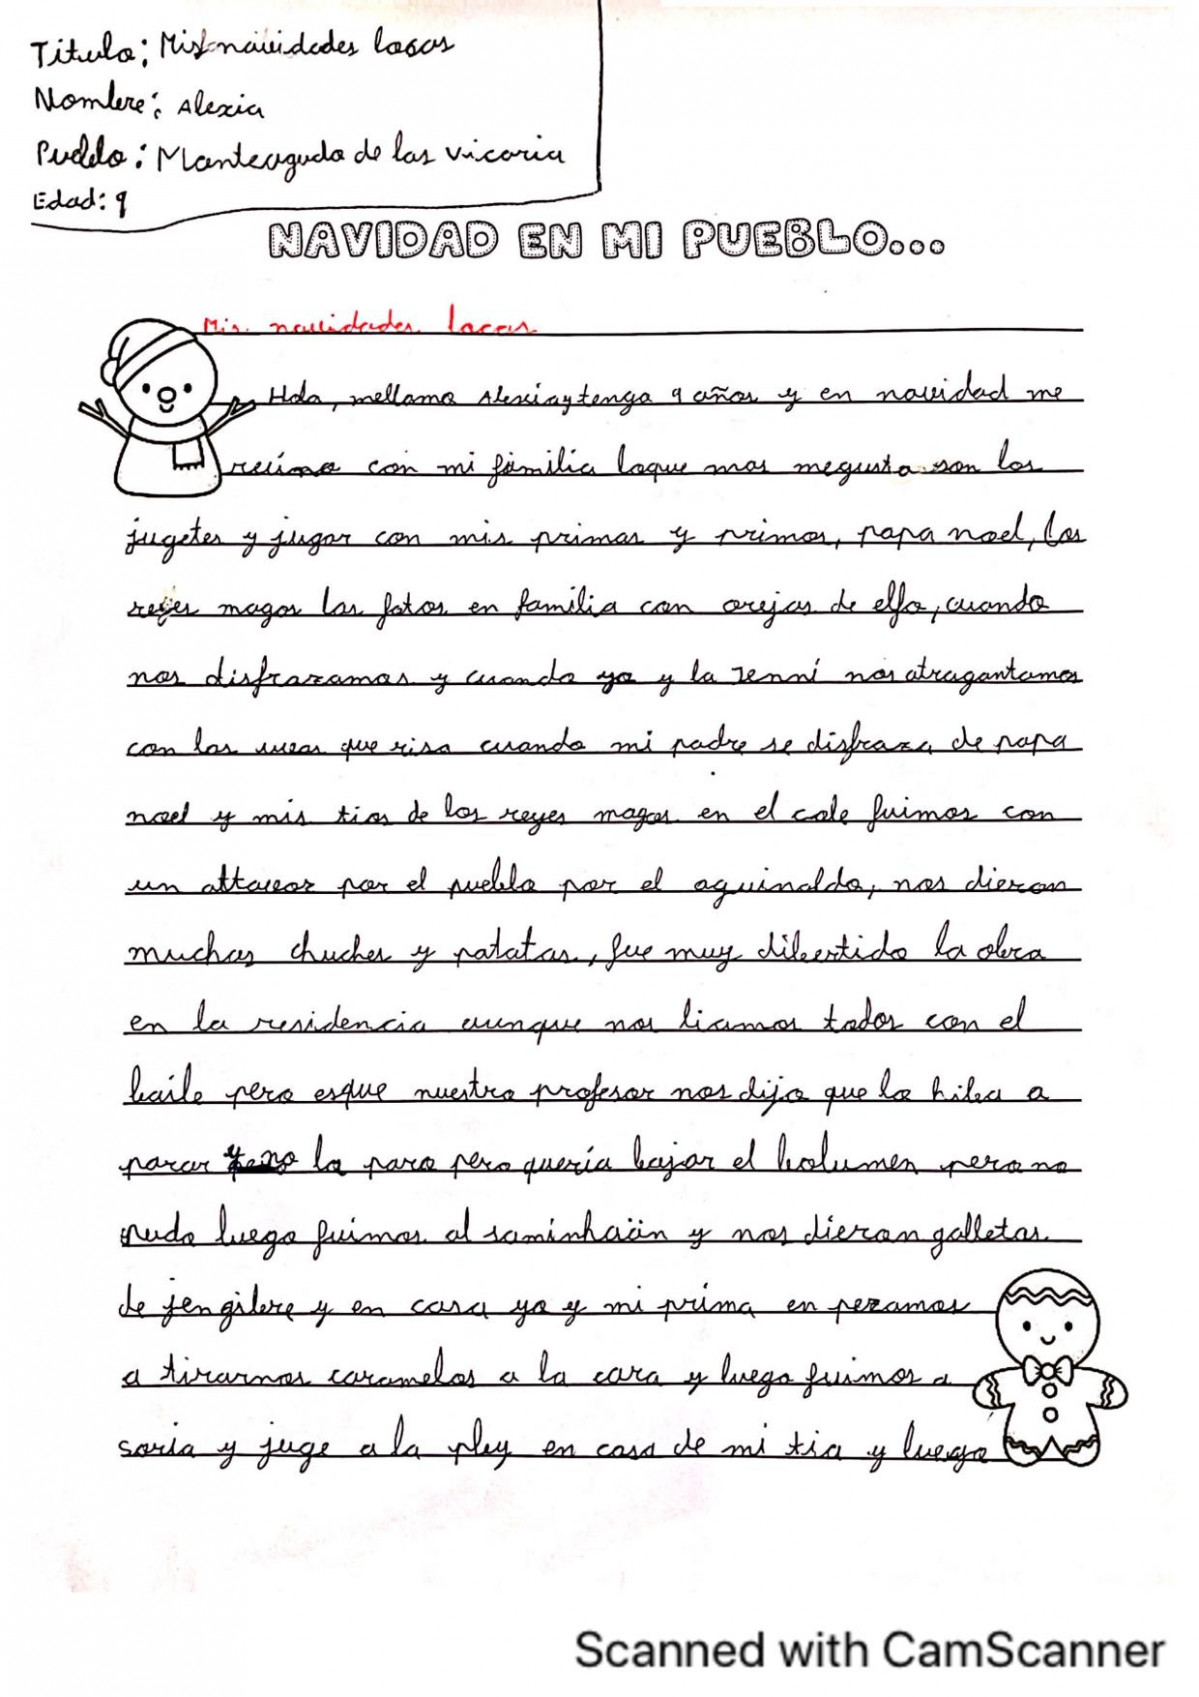 Título: Mis navidades locas
Nombre: Alexia
Pueblo: Monteagudo de las vicaria
Edad: 9
NAVIDAD EN MI PUEBLO...
Mis navidades locas
Hola, mellamo Alexia y tengo 9 años y en navidad me
reúno con mi familia loque mas megusta son los
jugetes y jugar con mis primas y primos, papa noel, los
reyes magos las fotos en familia con orejas de elfo, cuando
nos disfrazamos y cuando yo y la Jenni nos atragantamos
con las uvas que risa cuando mi padre se disfraza de papa
noel y mis tios de los reyes magos en el cole fuimos con
un altavoz por el pueblo por el aguinaldo, nos dieron
muchas chuches y patatas, fue muy dibertido la obra
en la residencia aunque nos liamos todos con el
baile pero esque nuestro profesor nos dijo que lo hiba a
parar y no lo paro pero quería bajar el bolumen pero no
pudo luego fuimos al
y nos dieron galletas
de jengibre y en casa yo y mi prima en pezamos
a tirarnos caramelos a la cara y luego fuimos a
soria y juge a la pley en casa de mi tia y luego
Scanned with CamScanner